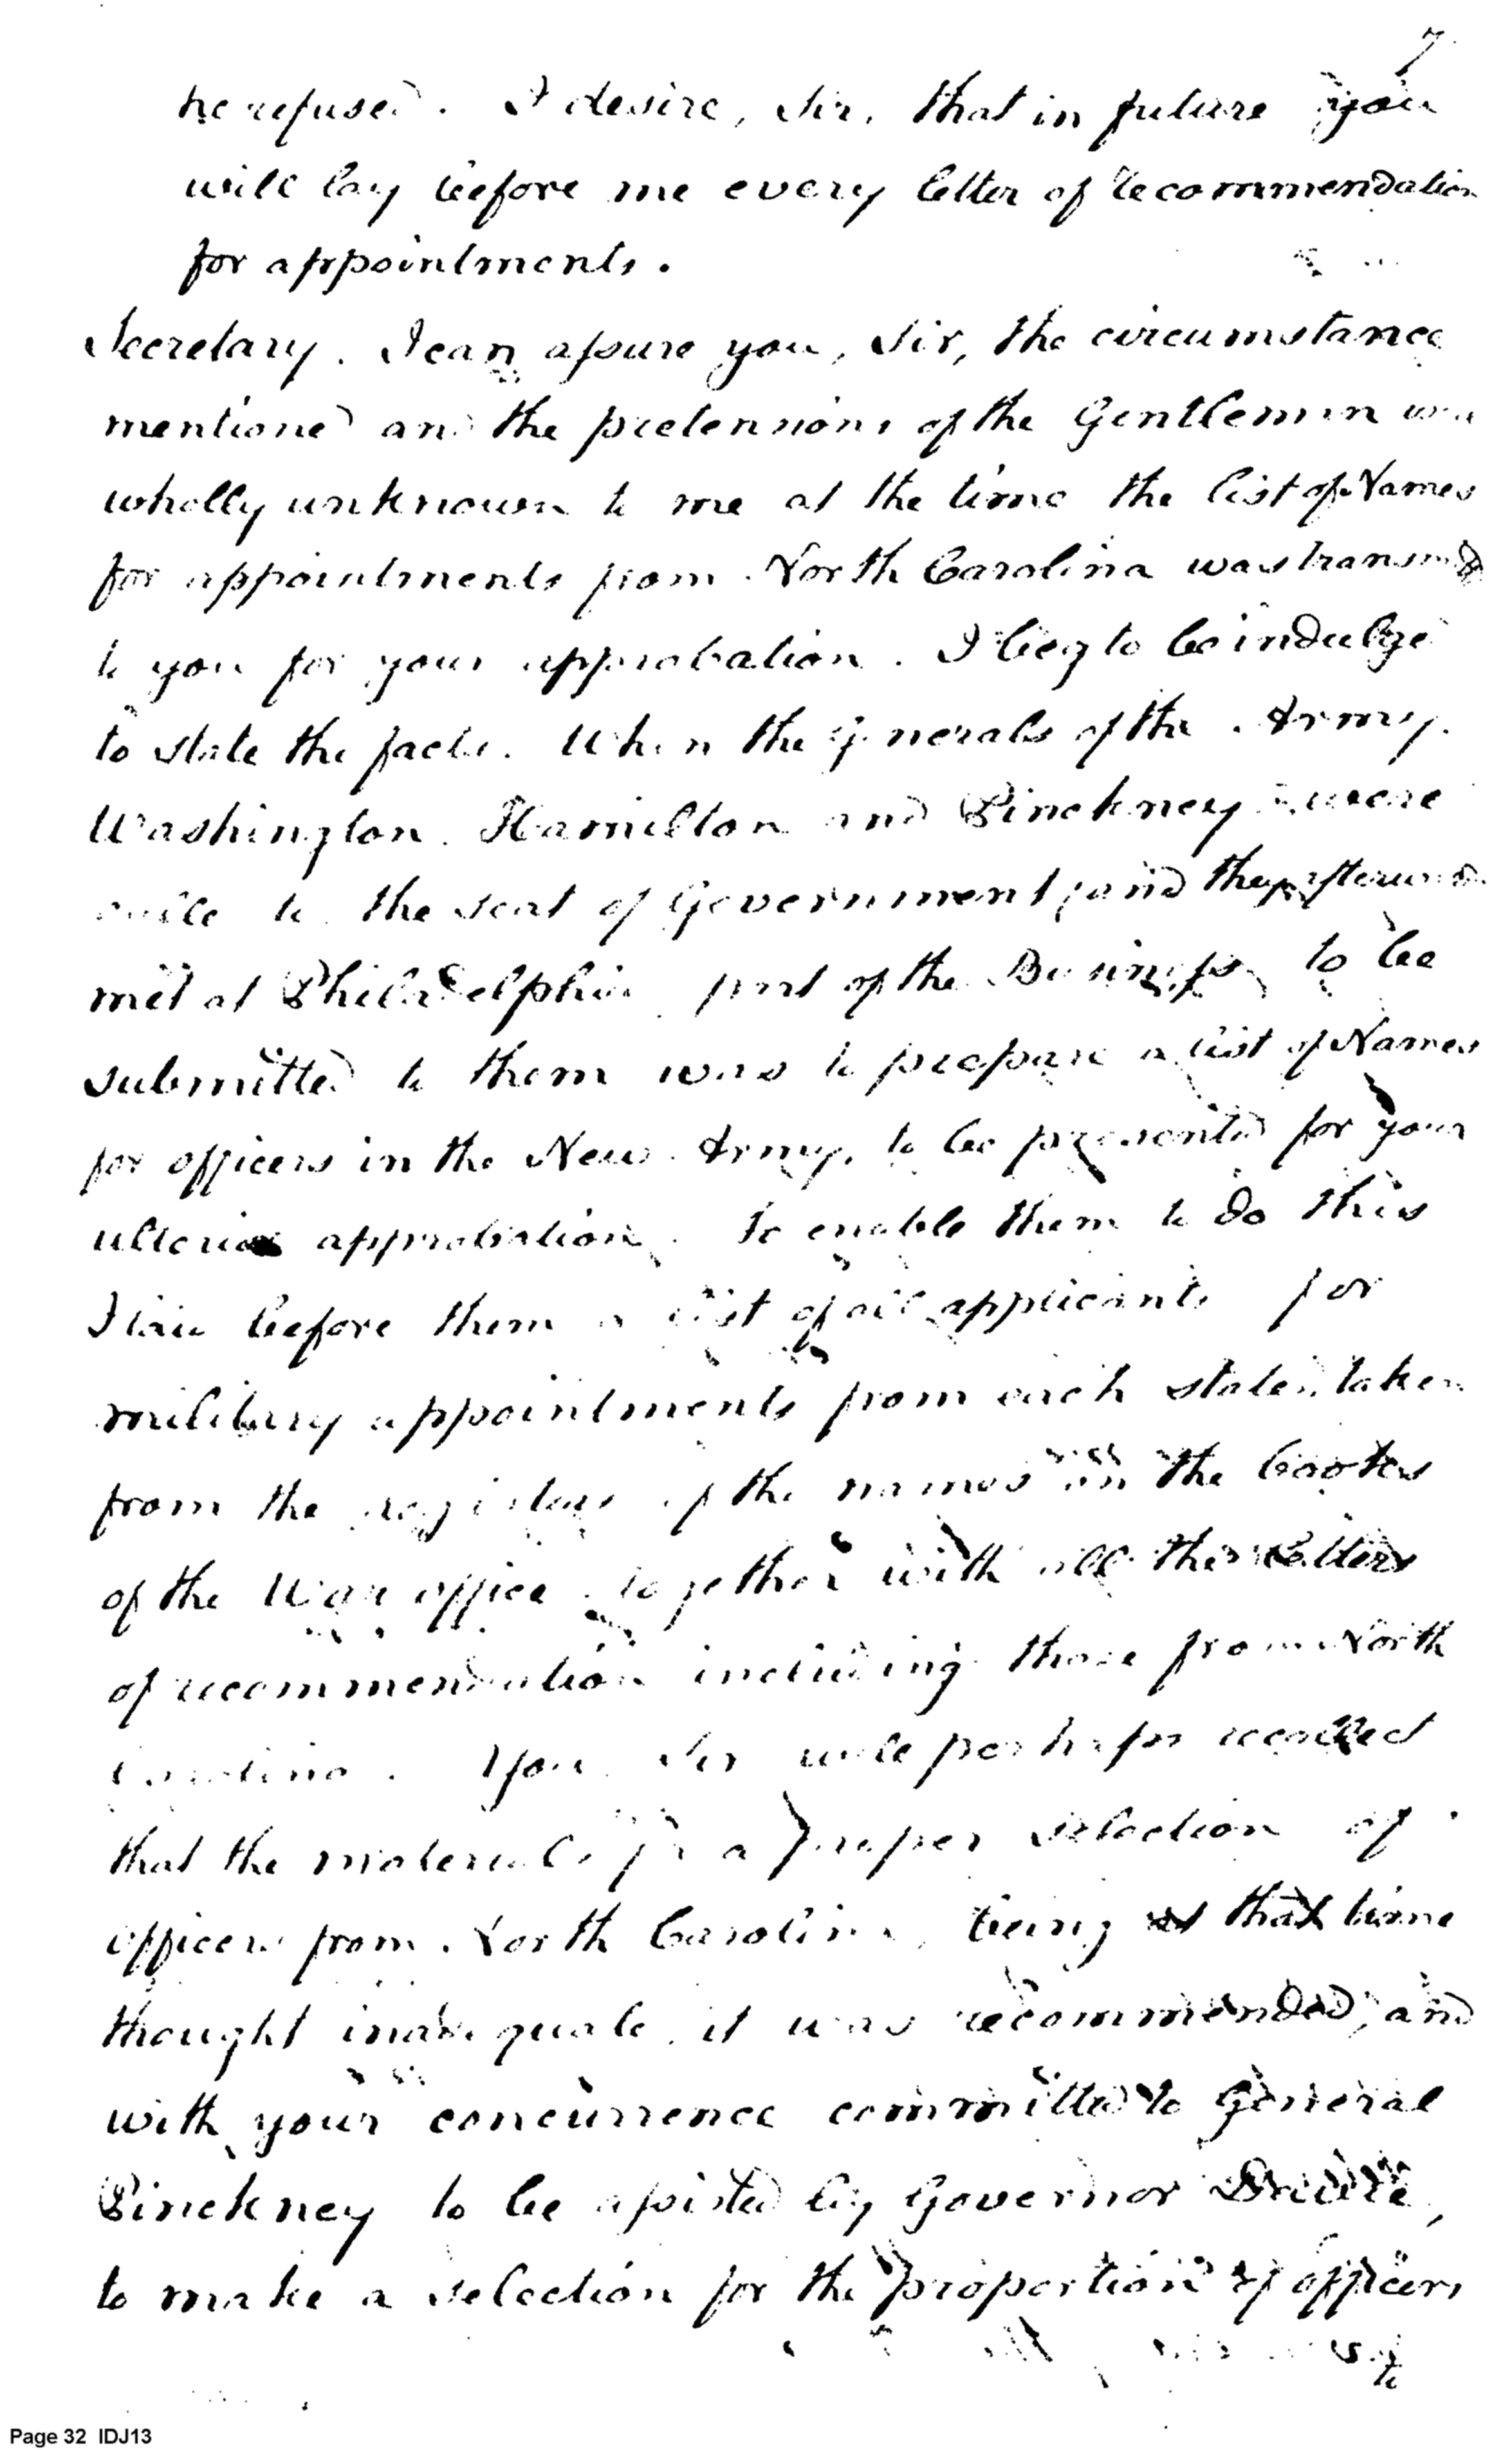 7
he refused. I desire, Sir, that in future you
will lay before me every letter of recommendation
for appointments.
Secretary. I can assure you, Sir, the circumstance
mentioned and the pretensions of the Gentleman was
wholly unknown to me at the time the list of Names
for appointments from North Carolina was
to you for your approbation. I beg to be indulged
to state the facts. When the Generals of the Army.
Washington. Hamilton and Pinckney were
to the seat of Government, and they afterwards
met at Philadelphia part of the Business to be
submitted to them was to prepare a list of Names
for officers in the New Army, to be presented for your
ulterior approbation. To enable them to do this
I laid before them a list of all applicants for
military appointments from each state, taken
from the registers of the names in the Books
of the War office together with all the Letters
of recommendation including those from North
Carolina. You Sir will perhaps recollect
that the materials for a proper selection of
officers from North Carolina, being at that time
thought inadequate, it was recommended, and
with your concurrence committed to General
Pinckney to be assisted by Governor
to make a selection for the proportion of officers
Page 32 IDJ13